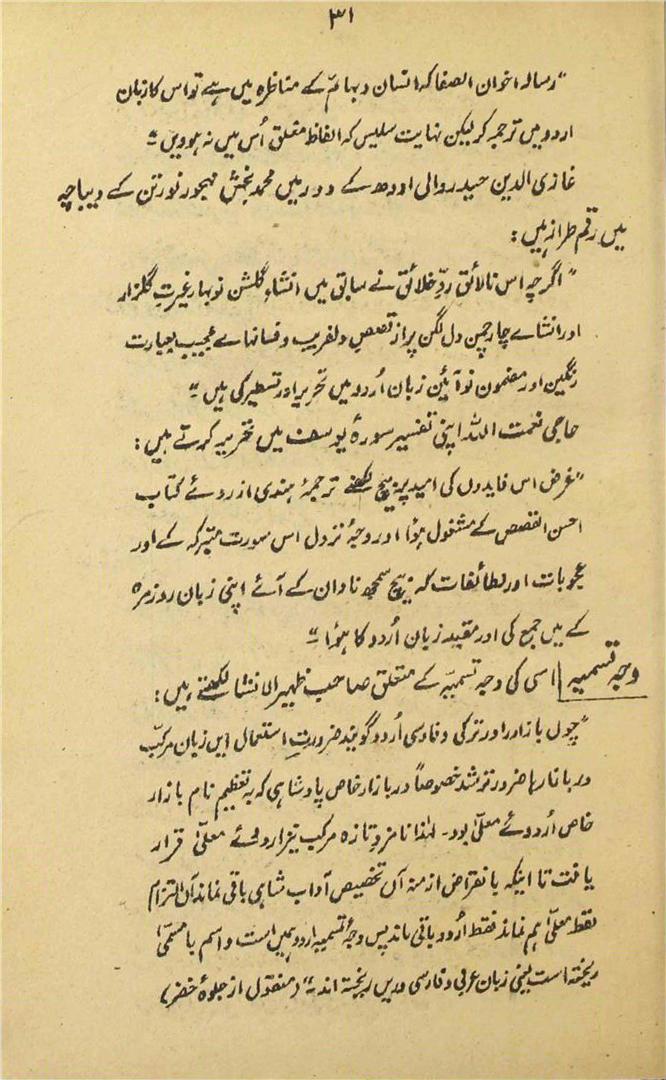 ۳۱
"رسالہ اخوان الصفا کہ انسان و بہائم کے مناظرہ میں ہے تو اس کا زبان
اردو میں ترجمہ کر لیکن نہایت سلیس کہ الفاظ مغلق اُس میں نہ ہوویں"
غازی الدین حیدر والی اودھ کے دور میں محمد بخش مہجور نورتن کے دیباچہ
میں رقم طراز ہیں:
"اگرچہ اس نالائق ردِّ خلائق نے سابق میں انشاء گلشن نوبہار غیرتِ گلزار
اور انشاے چارچمن دل لگن پر از قصص دلفریب و فسانہاے عجیب بعبارت
رنگین اور مضمون نو آئین زبان اُردو میں تحریر اور تسطیر کی ہیں"
حاجی نعمت اللہ اپنی تفسیر سورۂ یوسف میں تحریر کرتے ہیں:
"غرض اس فایدوں کی امید پر بیچ لکھنے ترجمۂ ہندی از روئے کتاب
احسن القصص کے مشغول ہؤا اور وجۂ نزول اس سورت متبرکہ کے اور
عجوبات اور لطائفات کہ بیچ سمجھ نادان کے آئے اپنی زبان روزمرہ
کے میں جمع کی اور مقید زبان اُردو کا ہوُا"
وجہ تسمیہ اسی کی وجہ تسمیّہ کے متعلق صاحب ظہیر الانشا لکھتے ہیں:
"چوں بازار را در ترکی و فارسی اُردو گویند ضرورتِ استعمال ایں زبان مرکّب
در بازارہا ضرور تر شد خصوصاً در بازار خاص پادشاہی کہ بہ تعظیم نام بازار
خاص اُردوئے معلیٰ بود۔ لہٰذا نامزدِ تازہ مرکب نیز اردوئے معلیٰ قرار
یافت تا اینکہ بانقراض ازمنہ آں تخصیص آداب شاہی باقی نماند آں التزام
لفظ معلیٰ ہم نماند فقط اُردو باقی ماند پس وجۂ تسمیہ اردو ہمیں است و اسم بامسمّیٰ
ریختہ است یعنی زبان عربی و فارسی دریں ریختہ اند" (منقول از جلوۂ خضر)